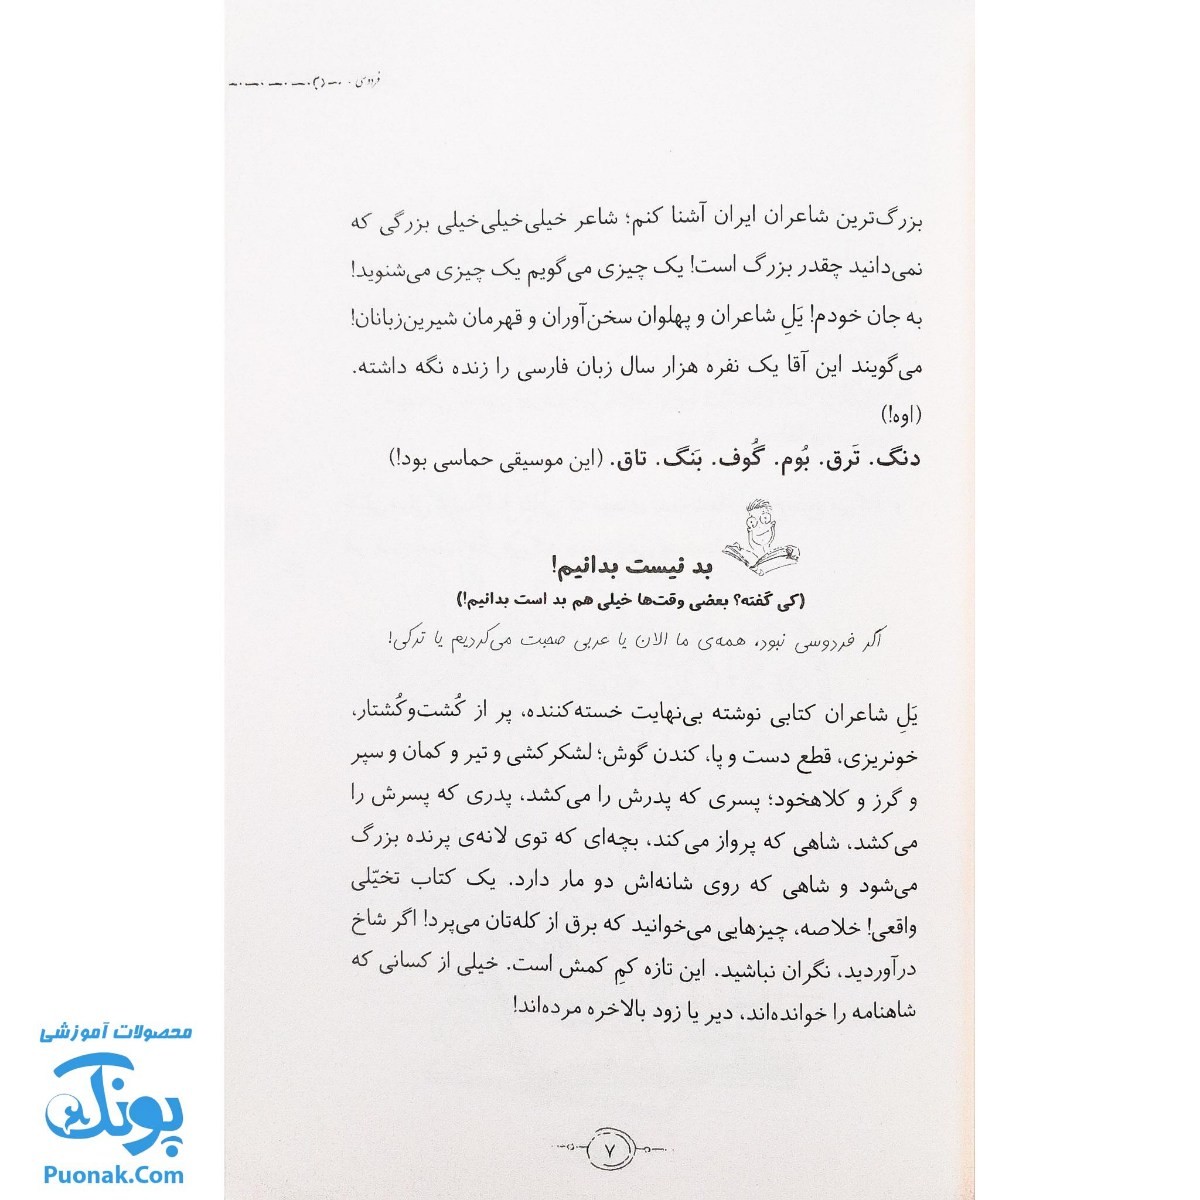 فردوسی
بزرگ‌ترین شاعران ایران آشنا کنم؛ شاعر خیلی‌خیلی‌خیلی بزرگی که
نمی‌دانید چقدر بزرگ است! یک چیزی می‌گویم یک چیزی می‌شنوید!
به جان خودم! یَلِ شاعران و پهلوان سخن‌آوران و قهرمان شیرین‌زبانان!
می‌گویند این آقا یک نفره هزار سال زبان فارسی را زنده نگه داشته.
(اوه!)
دنگ. تَرق. بُوم. گُوف. بَنگ. تاق. (این موسیقی حماسی بود!)
بد نیست بدانیم!
(کی گفته؟ بعضی وقت‌ها خیلی هم بد است بدانیم!)
اگر فردوسی نبود، همه‌ی ما الان یا عربی صحبت می‌کردیم یا ترکی!
یَلِ شاعران کتابی نوشته بی‌نهایت خسته‌کننده، پر از کُشت‌وکُشتار،
خونریزی، قطع دست و پا، کندن گوش؛ لشکرکشی و تیر و کمان و سپر
و گرز و کلاهخود؛ پسری که پدرش را می‌کشد، پدری که پسرش را
می‌کشد، شاهی که پرواز می‌کند، بچه‌ای که توی لانه‌ی پرنده بزرگ
می‌شود و شاهی که روی شانه‌اش دو مار دارد. یک کتاب تخیّلی
واقعی! خلاصه، چیزهایی می‌خوانید که برق از کله‌تان می‌پرد! اگر شاخ
درآوردید، نگران نباشید. این تازه کمِ کمش است. خیلی از کسانی که
شاهنامه را خوانده‌اند، دیر یا زود بالاخره مرده‌اند!
۷
محصولات آموزشی
پونک
Puonak.Com